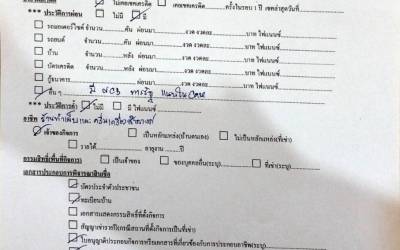 ไม่เคยเช็คเครดิต เคยเช็คเครดิต........ครั้งในรอบ 1 ปี เช็คล่าสุดวันที่
*** ประวัติการผ่อน ไม่มี มี
รถมอเตอร์ไซค์ จำนวน........คัน ผ่อนมา........งวด งวดละ........บาท ไฟแนนซ์
รถยนต์ จำนวน........คัน ผ่อนมา........งวด งวดละ........บาท ไฟแนนซ์
บ้าน จำนวน........หลัง ผ่อนมา........งวด งวดละ........บาท ไฟแนนซ์
บัตรเครดิต จำนวน........หลัง ผ่อนมา........งวด งวดละ........บาท ไฟแนนซ์
กู้ธนาคาร ผ่อนมา........งวด งวดละ........บาท ไฟแนนซ์
อื่นๆ มี SCB
*** ประวัติการค้ำ ไม่มี มี ไฟแนนซ์
อาชีพ
เจ้าของกิจการ เป็นหลักแหล่ง(บ้านตนเอง) ไม่เป็นหลักแหล่ง(ที่เช่า)
รายได้ อายุงาน........ปี
กรรมสิทธิ์(พื้นที่กิจการ) เป็นเจ้าของ ของบุคคลอื่น(ระบุ) ที่เช่า(ระบุ)
เอกสารประกอบการพิจารณาสินเชื่อ
บัตรประจำตัวประชาชน
ทะเบียนบ้าน
เอกสารแสดงกรรมสิทธิ์ที่ตั้งกิจการ
สัญญาเช่ารายปี(กรณีสถานที่ตั้งกิจการเป็นที่เช่า)
ใบอนุญาติประกอบกิจการหรือเอกสารที่เกี่ยวข้องกับการประกอบอาชีพ(ระบุ)